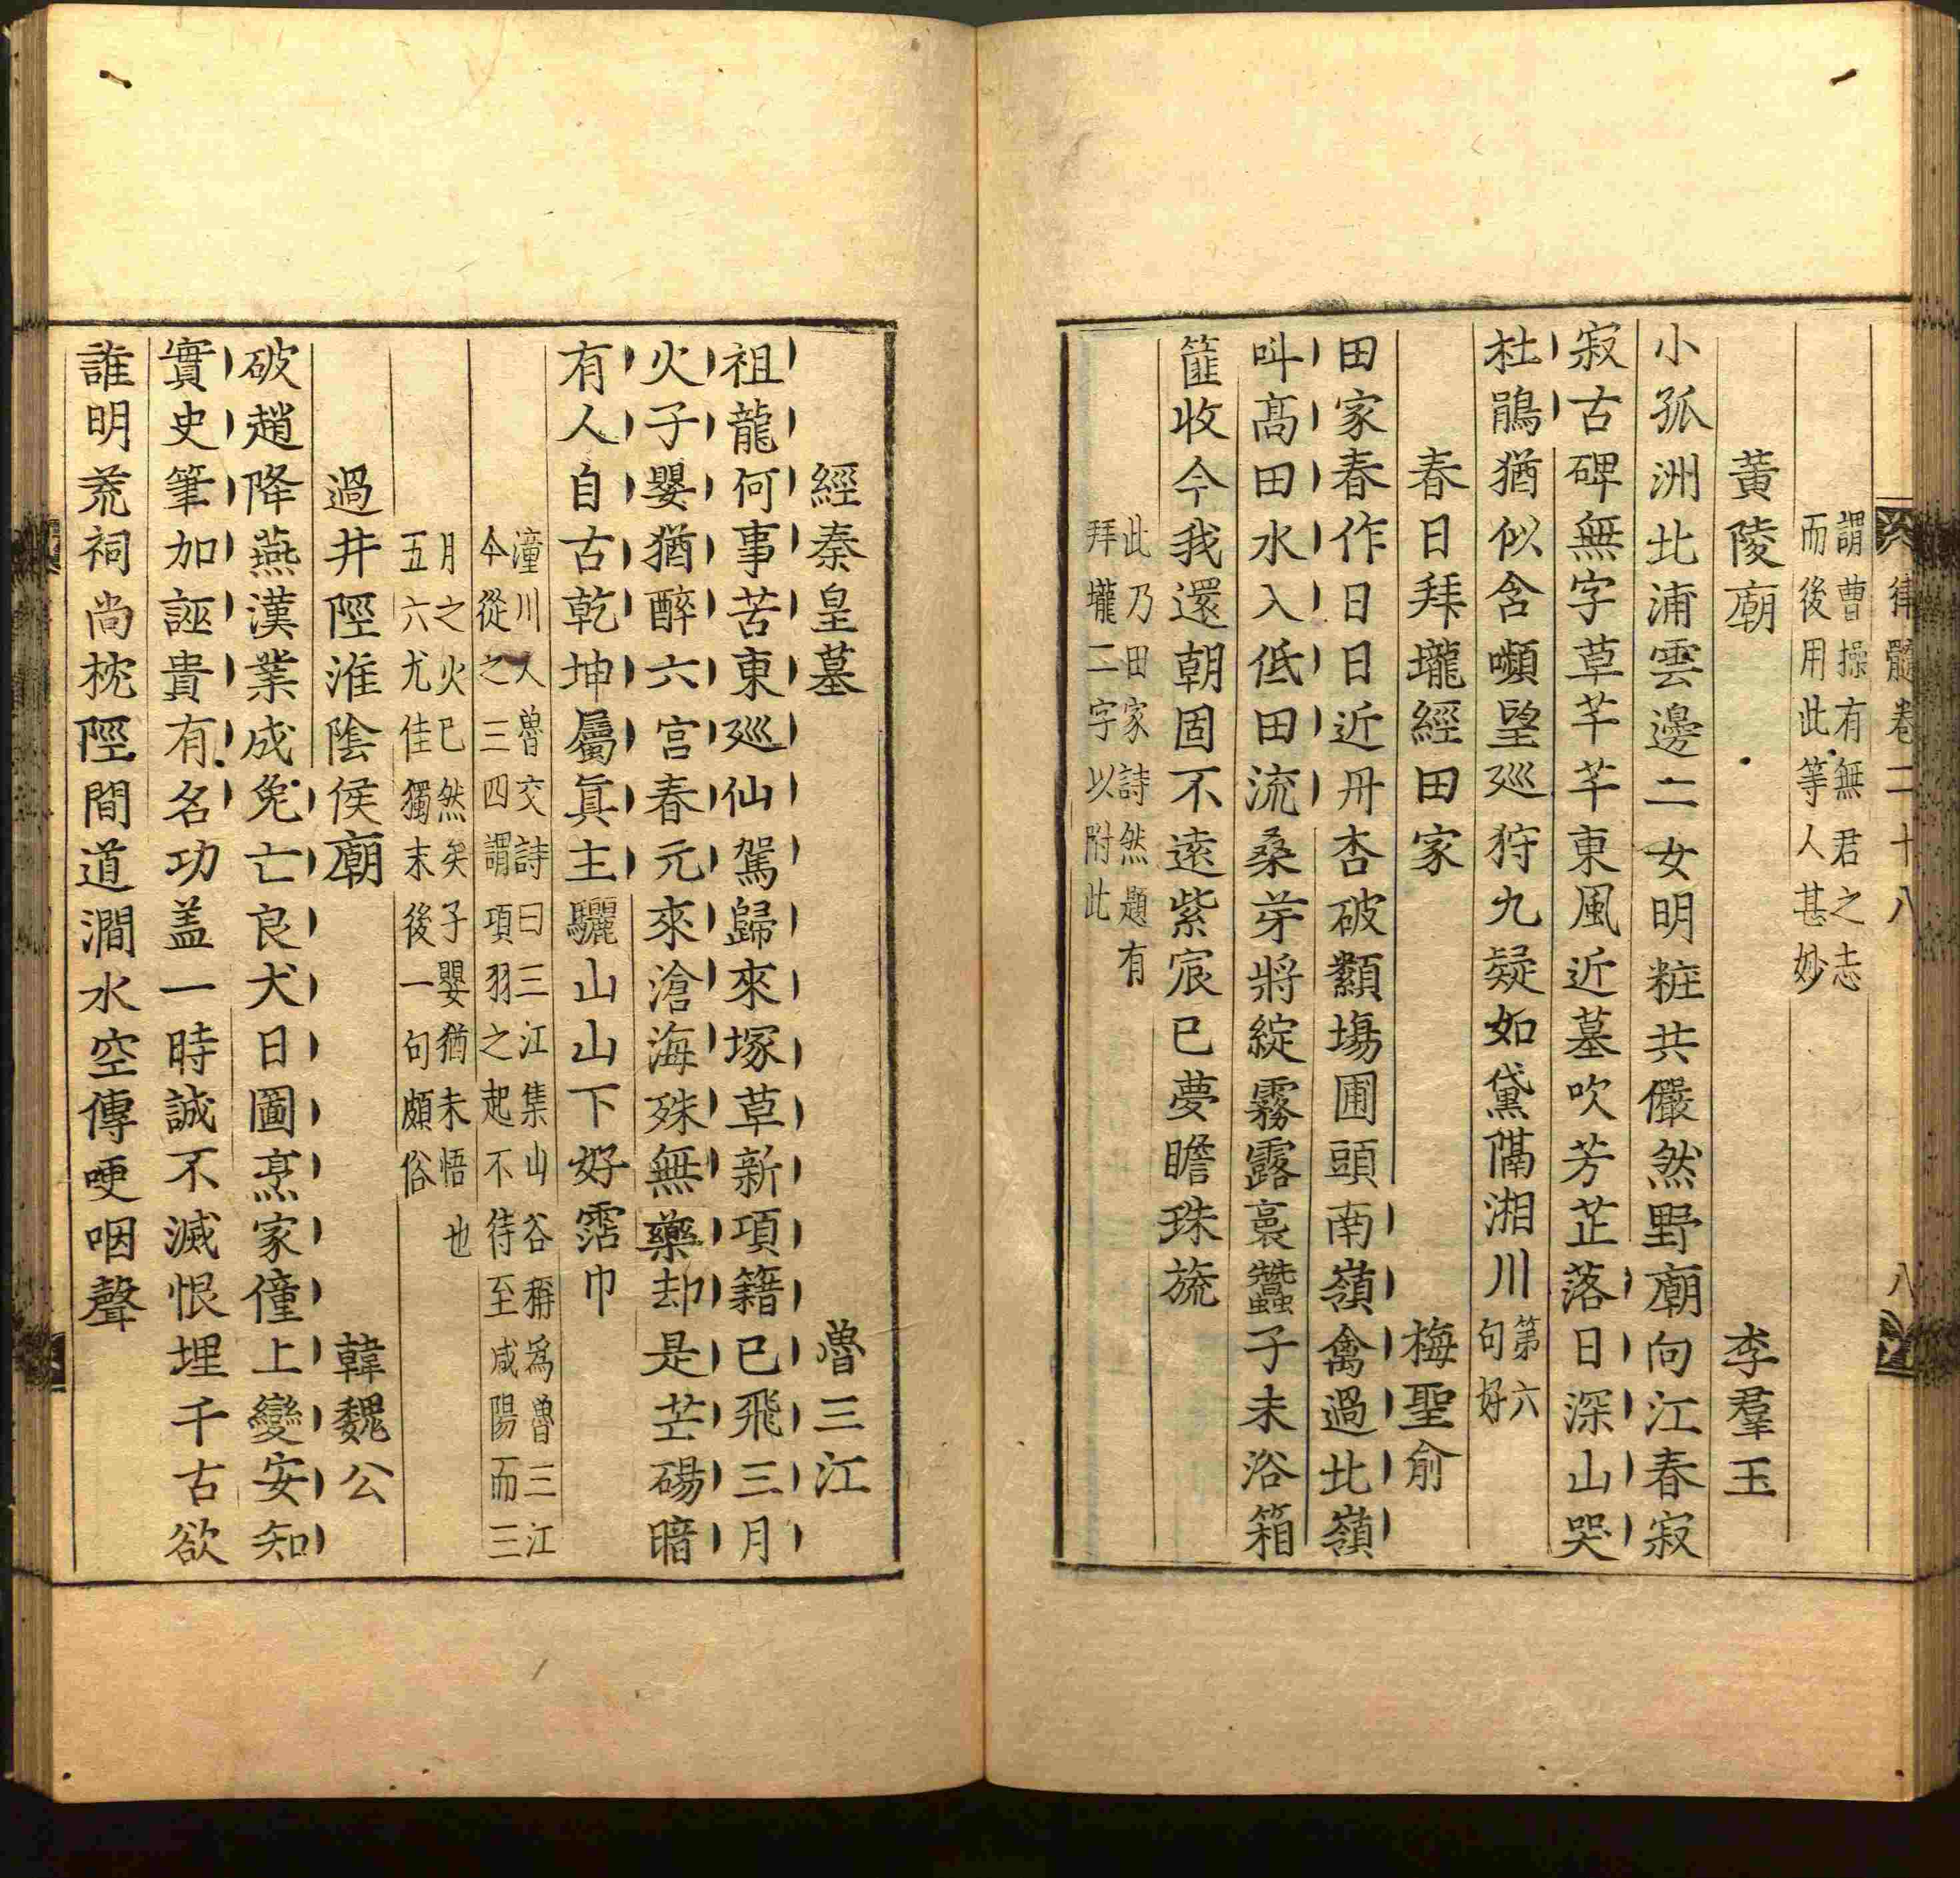 律髓卷二十八　八
謂曹操有無君之志
而後用此等人甚妙
黃陵廟　李羣玉
小孤洲北浦雲邊二女明粧共儼然野廟向江春寂
寂古碑無字草芊芊東風近墓吹芳芷落日深山哭
杜鵑猶似含嚬望廵狩九疑如黛隔湘川
第六
句好
春日拜壠經田家　梅聖俞
田家春作日日近丹杏破顆塲圃頭南嶺禽過北嶺
呌高田水入低田流桑芽將綻霧露裛蠶子未浴箱
篚收今我還朝固不遠紫宸已夢瞻珠旒
此乃田家詩然題有
拜壠二字以附此
經秦皇墓　魯三江
祖龍何事苦東廵仙駕歸來塚草新項籍已飛三月
火子嬰猶醉六宮春元來滄海殊無藥却是芒碭暗
有人自古乾坤屬眞主驪山山下好霑巾
潼川人魯交詩曰三江集山谷稱爲魯三江
今從之三四謂項羽之起不待至咸陽而三
月之火已然矣子嬰猶未悟也
五六尤佳獨末後一句頗俗
過井陘淮陰侯廟　韓魏公
破趙降燕漢業成兔亡良犬日圖烹家僮上變安知
實史筆加誣貴有名功盖一時誠不滅恨埋千古欲
誰明荒祠尚枕陘間道澗水空傳哽咽聲